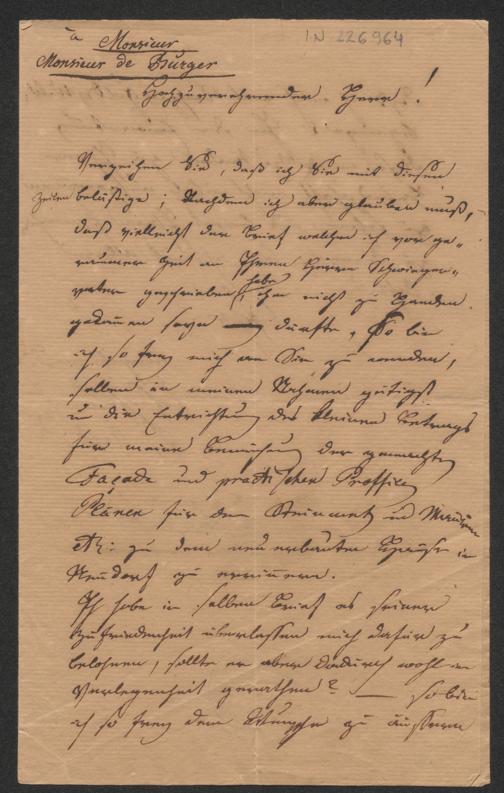 à Monsieur
IN 226964
Monsieur de Burger
Hochzuverehrender Herr!
Verzeihen Sie, daß ich Sie mit diesen
Zeilen belästige; Nachdem ich aber glauben muß,
daß vielleicht der Brief welchen ich vor ge-
raumer Zeit an Ihren Herrn Schwieger-
vater geschrieben habe, ihm nicht zu Handen
gekommen seyn dürfte, So bin
ich so frey mich an Sie zu wenden,
selben in meinen Nahmen gütigst
um die Entrichtung des kleinen Betrags
für meine Bemühung der gemachten
Façade und practischen Proffile
Plänen für den Steinmetz und Maurer
etc: zu dem neu erbauten Hause in
Neudorf zu erinnern.
Ich habe in selben Brief es seiner
Zufriedenheit überlassen mich dafür zu
belohnen, sollte er aber dadurch wohl in
Verlegenheit gerathen? — so bin
ich so frey den Wunsche zu äussern